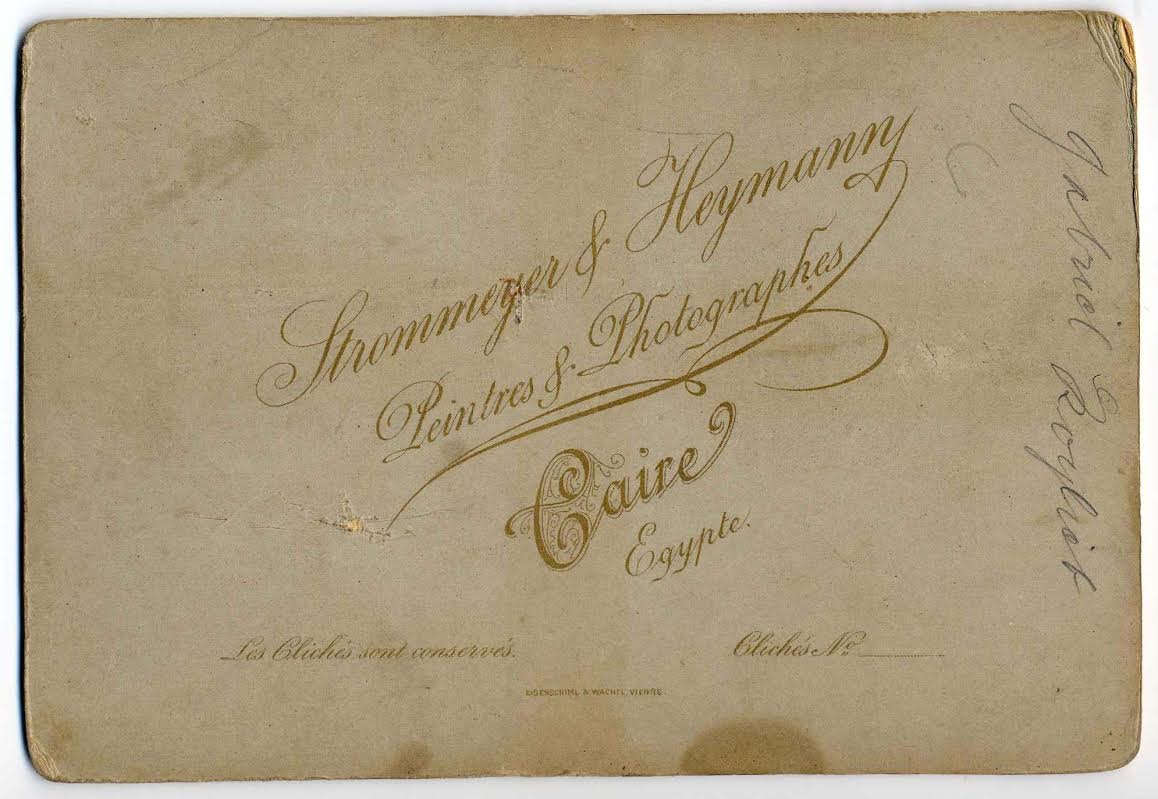 Strommeyer & Heymann
Peintres & Photographes
Caire
Egypte.
Les Clichés sont conservés.
Clichés No
EISENSCHIML & WACHTL, VIENNE
Gabriel